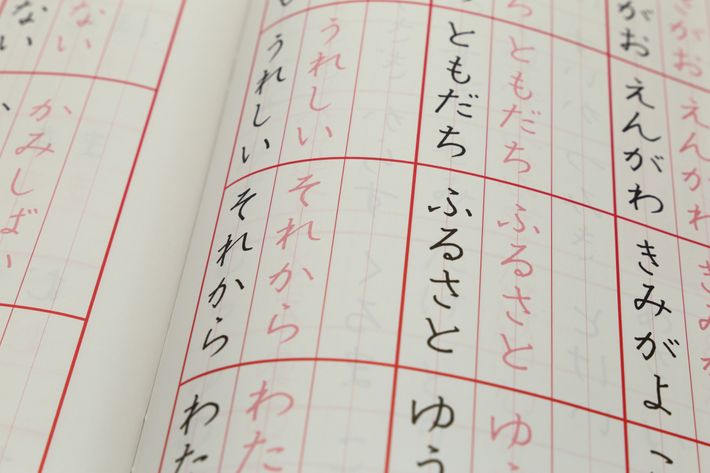 さがお
えんがわ
きみが
がお
えんがわ
きみがよ
ともだち
ふるさと
ゆ
ともだち
ふるさと
ゆう
うれしい
それから
わた
い
うれしい
それから
わた
ない
かみしばい
ない
い